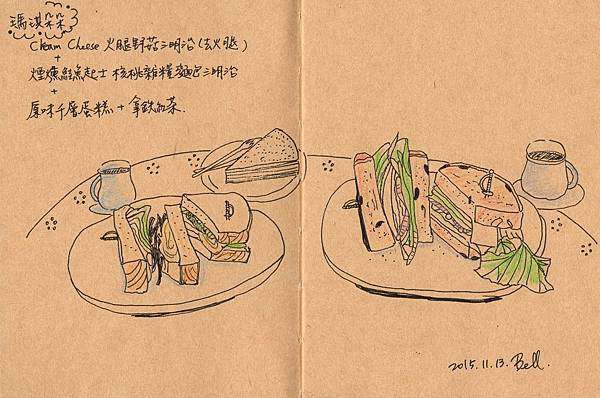 瑪淇朵朵
Cream Cheese 火腿野菇三明治(去火腿)
+
煙燻鮭魚起士核桃雜糧麵包三明治
+
原味千層蛋糕 + 拿鐵紅茶.
2015.11.13. Bell.